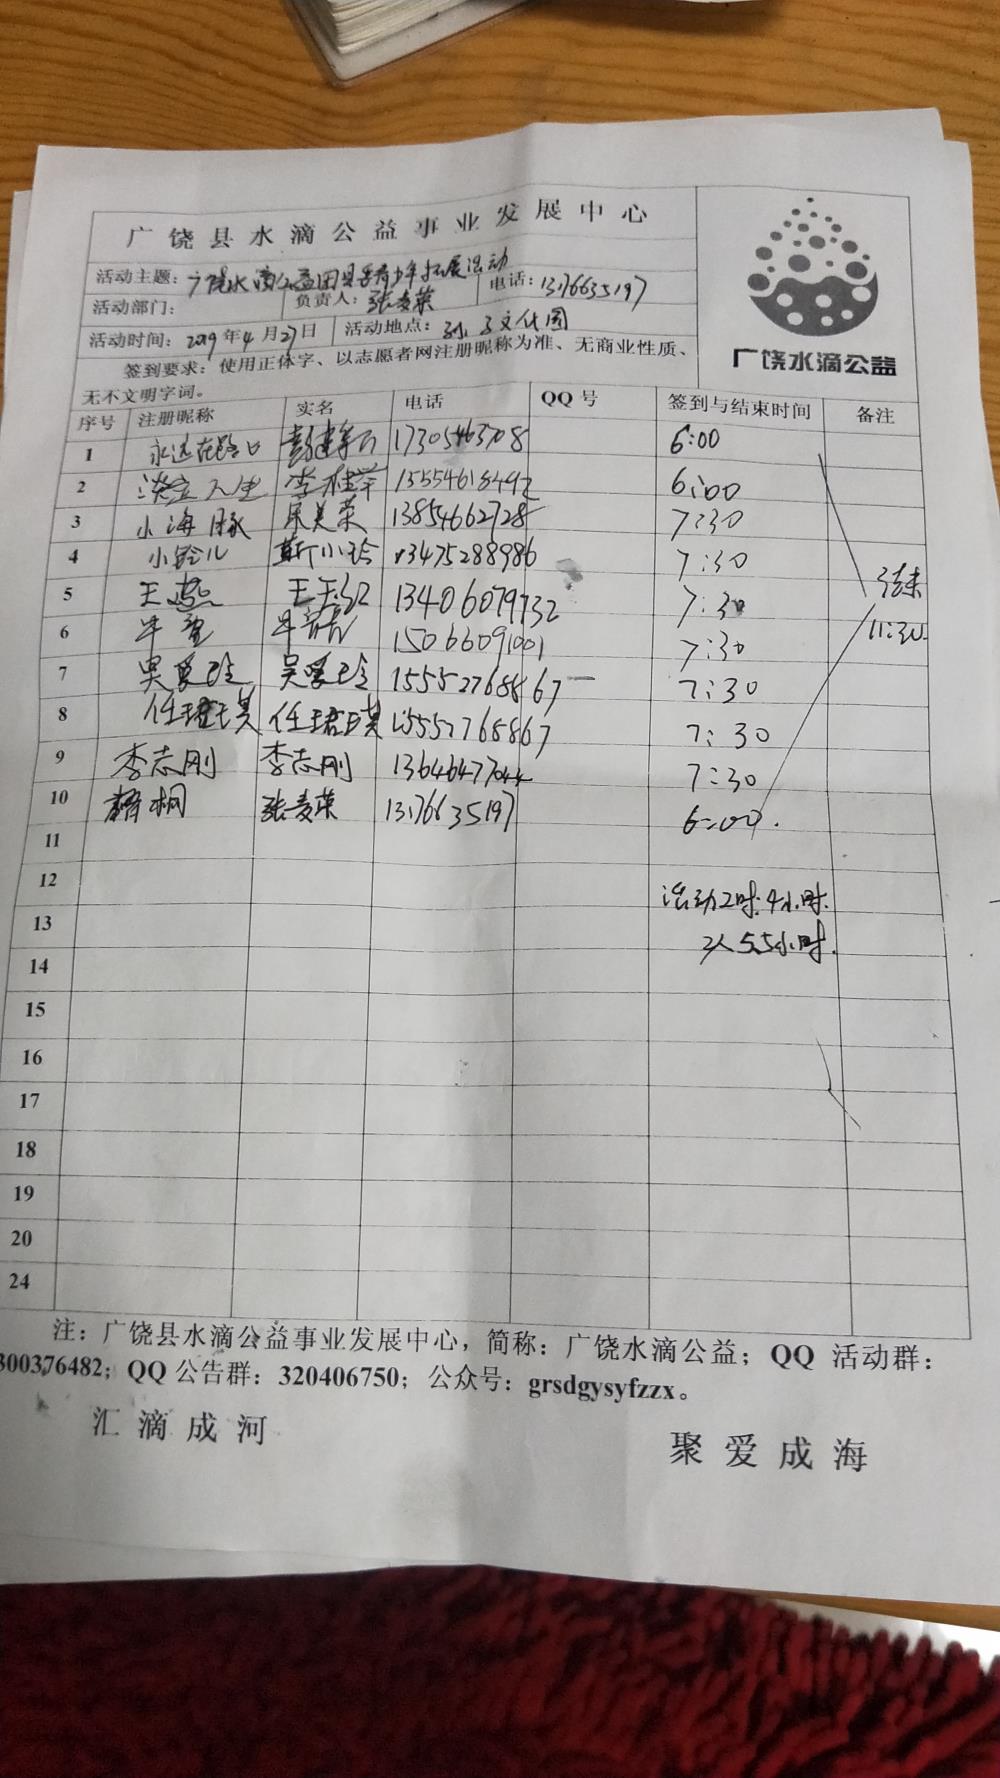 广饶县水滴公益事业发展中心
活动主题：广饶水滴公益团县委青少年拓展活动 电话：13176635197
活动部门： 负责人：张麦荣
活动时间：2019年4月27日 活动地点：孙子文化园
签到要求：使用正体字、以志愿者网注册昵称为准、无商业性质、
无不文明字词。
广饶水滴公益
序号 注册昵称 实名 电话 QQ号 签到与结束时间 备注
1 永远在路口 17305463708 6:00
2 人生 李桂 15554618492 6:00
3 小海豚 宋美荣 13854662728 7:30
4 小铃儿 靳小玲 13475288986 7:30
5 王燕 王玉红 13406079732 7:30 结束
6 15066091001 7:30 11:30
7 吴爱玲 吴爱玲 15552768867 7:30
8 任珺琪 任珺琪 15552768867 7:30
9 李志刚 李志刚 13646477044 7:30
10 梧桐 张麦荣 13176635197 6:00
11
12 活动2时:4小时.
13 2人5.5小时.
14
15
16
17
18
19
20
24
注：广饶县水滴公益事业发展中心，简称：广饶水滴公益；QQ 活动群：
300376482；QQ 公告群：320406750；公众号：grsdgysyfzzx。
汇滴成河 聚爱成海